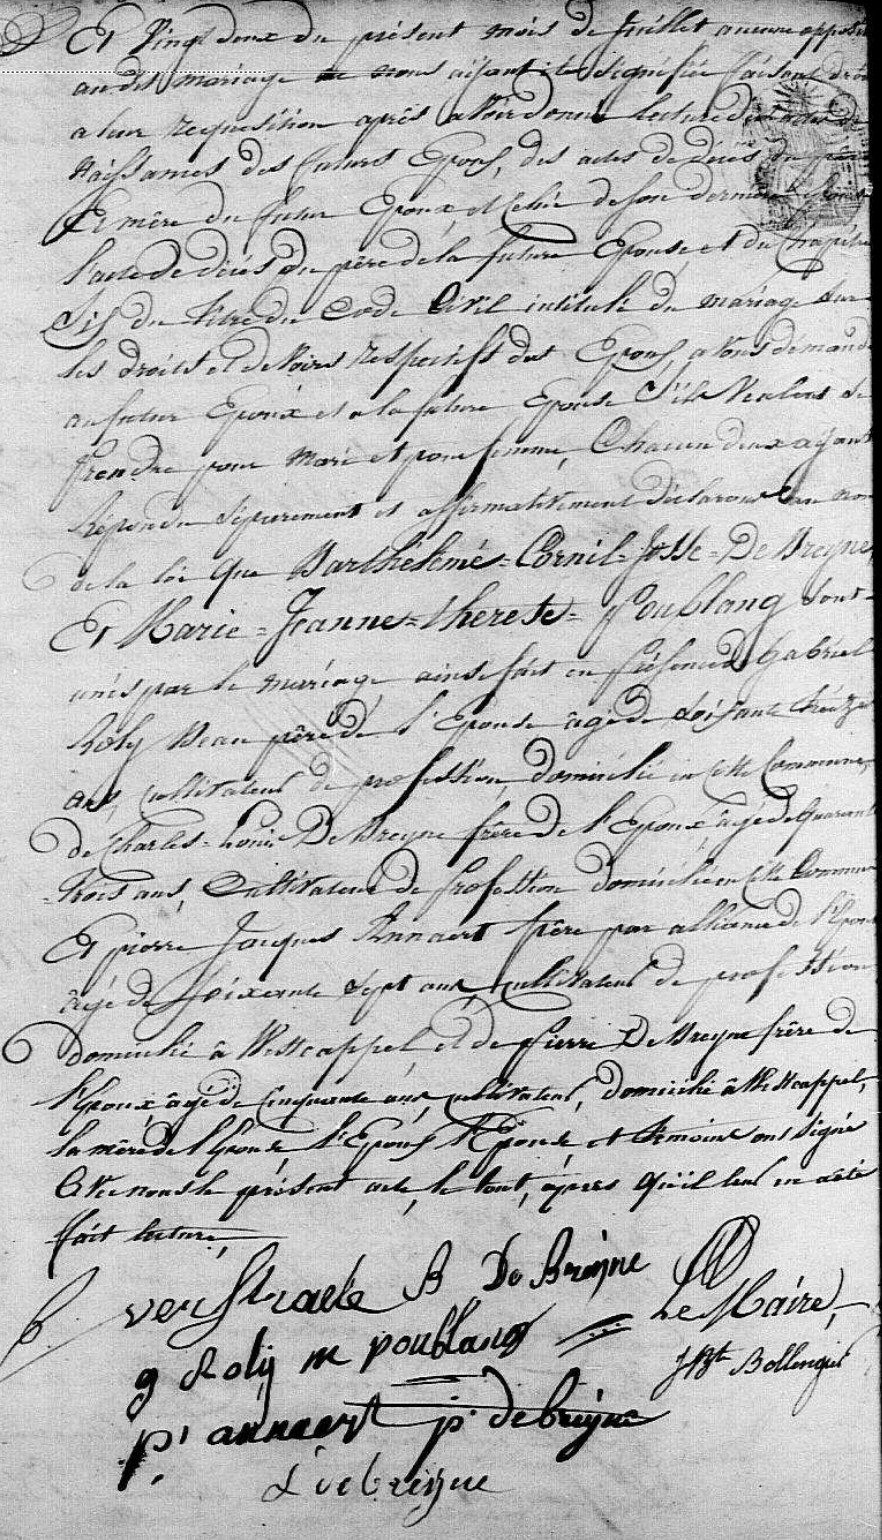 Et Vingt deux du présent mois de Juillet aucune opposit
audit mariage ne nous aïjant été signifiée faisant droi
a leur requisition après avoir donné lecture des actes de
Naissances des futurs Epous, des actes de décés du père
Et mère du futur Epoux, et celui de son dernier
l'acte de décés du père de la future Epouse, et du Chapitre
Six du titre du Code Civil intitulé du mariage sur
les droits et devoirs respectifs des Epous, avons demandé
au futur Epoux et a la future Epouse S'ils Veulent se
prendre pour mari et pour femme, Chacun deux aÿant
Répondu séparement et affirmativement déclarons au nom
de la loi que Barthélemé=Cornil=Josse=DeBreyne,
Et Marie=Jeanne=therese=Poublang sont
unis par le mariage, ainsi fait en présence de Gabriël
Roly Beau père de l'Epouse âgé de soixante treize
ans, cultivateur de profession, domicilié en cette Commune,
de Charles=Louis DeBreyne frère de l'Epoux, âgé de Quarante
=trois ans, Cultivateur de profession domicilié en cette Commune
Et pierre Jacques Annaert frère par alliance de l'Epoux
âgé de soixante sept ans, cultivateur de profession
domicilié à Westcappel, et de pierre DeBreyne frère de
l'Epoux, âgé de Cinquante ans, cultivateur, domicilié à Westcappel,
la mère de l'Epouse l'Epous l'Epouse, et temoins ont signé
Avec nous le présent acte, le tout, après qu'il leur en a été
fait lecture,
verstraete B De Breÿne
Le Maire,
g Rolÿ m poublang
JBte Bollengier
p' annaert p. debreÿne
L debreÿne